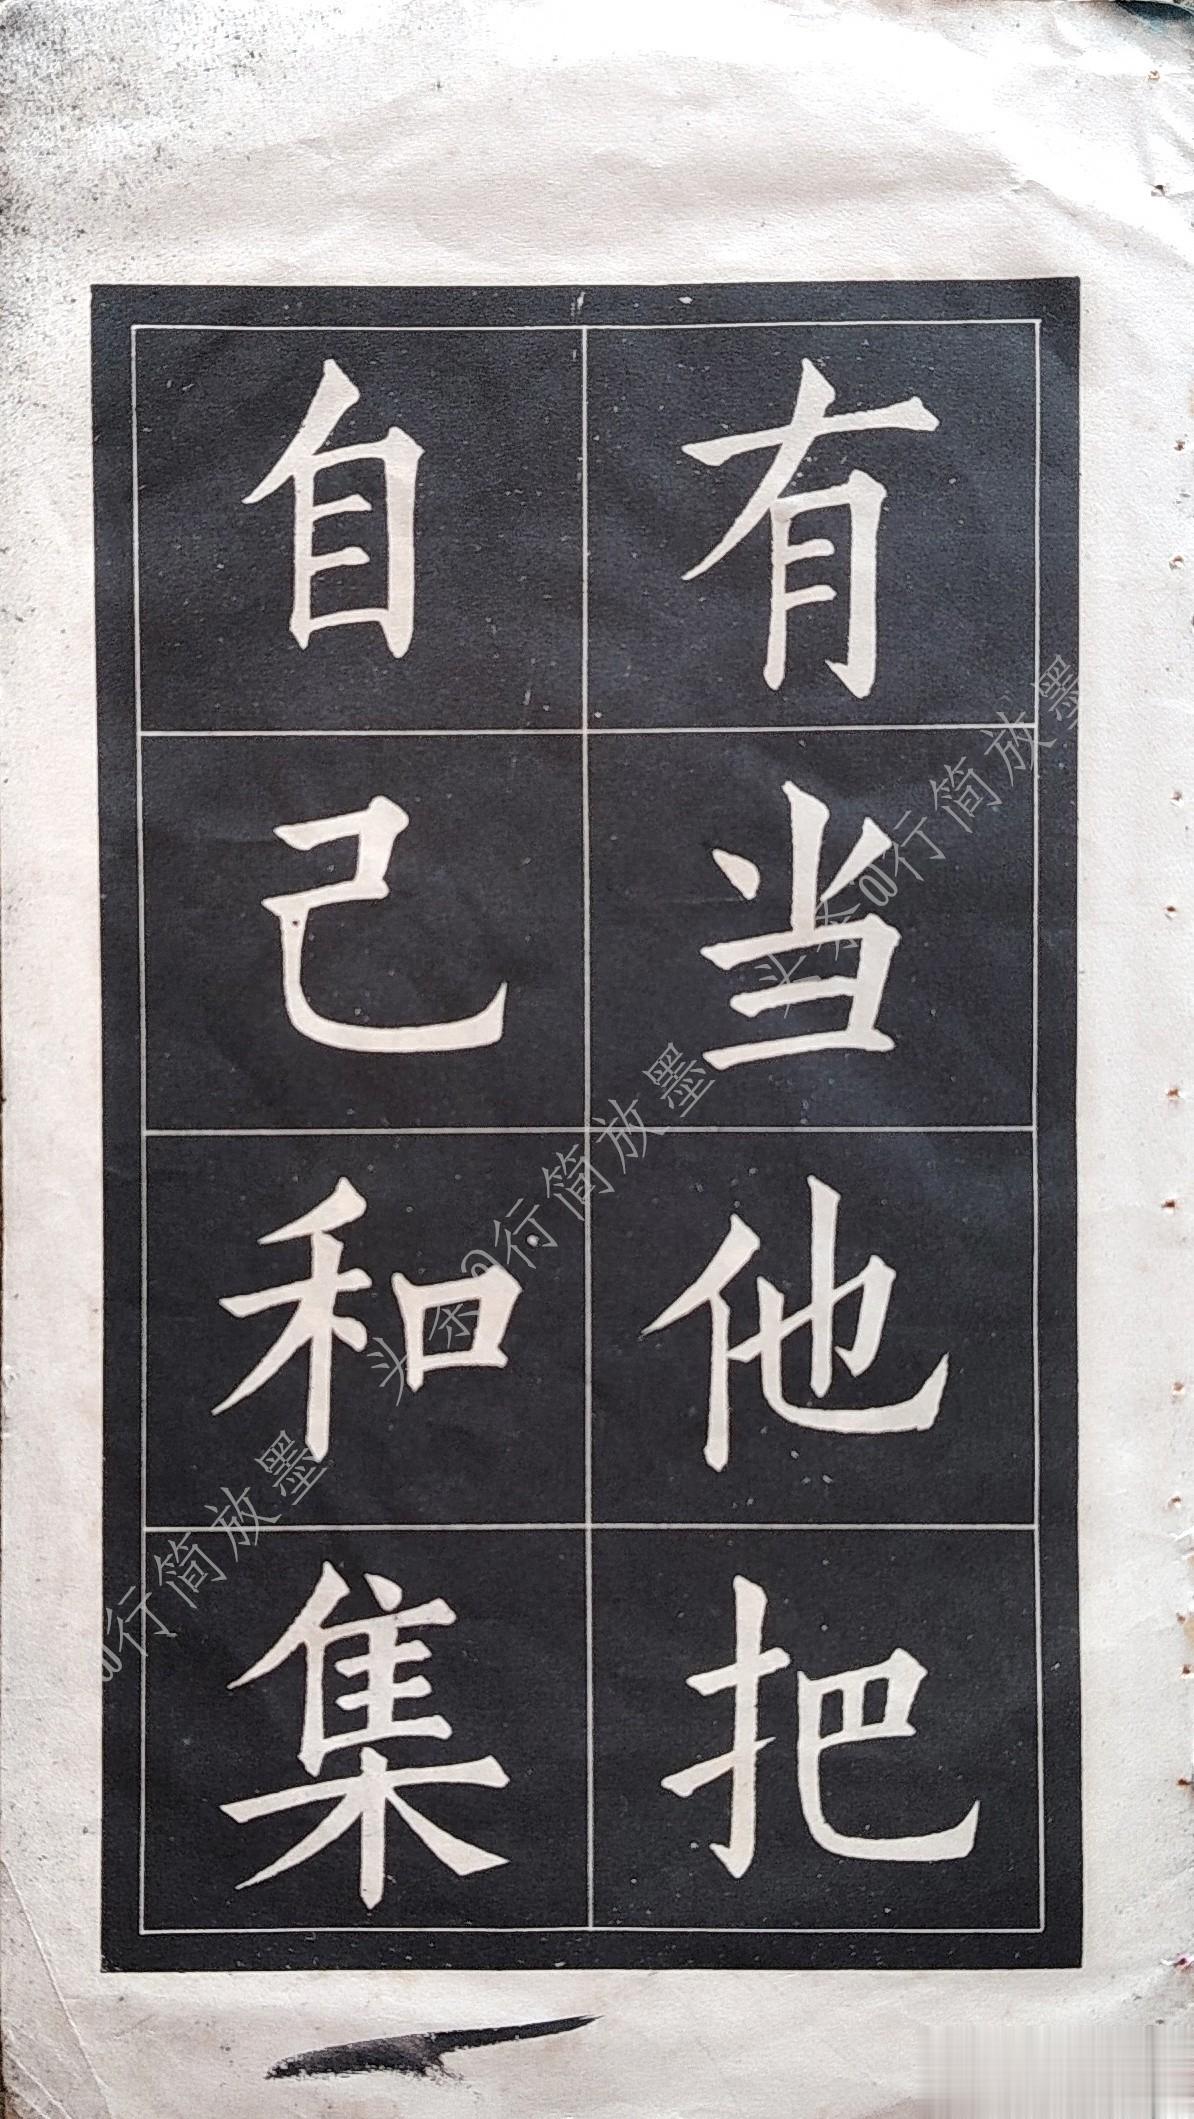 有当他把
自己和集
头条@行简放墨
头条@行简放墨
@行简放墨